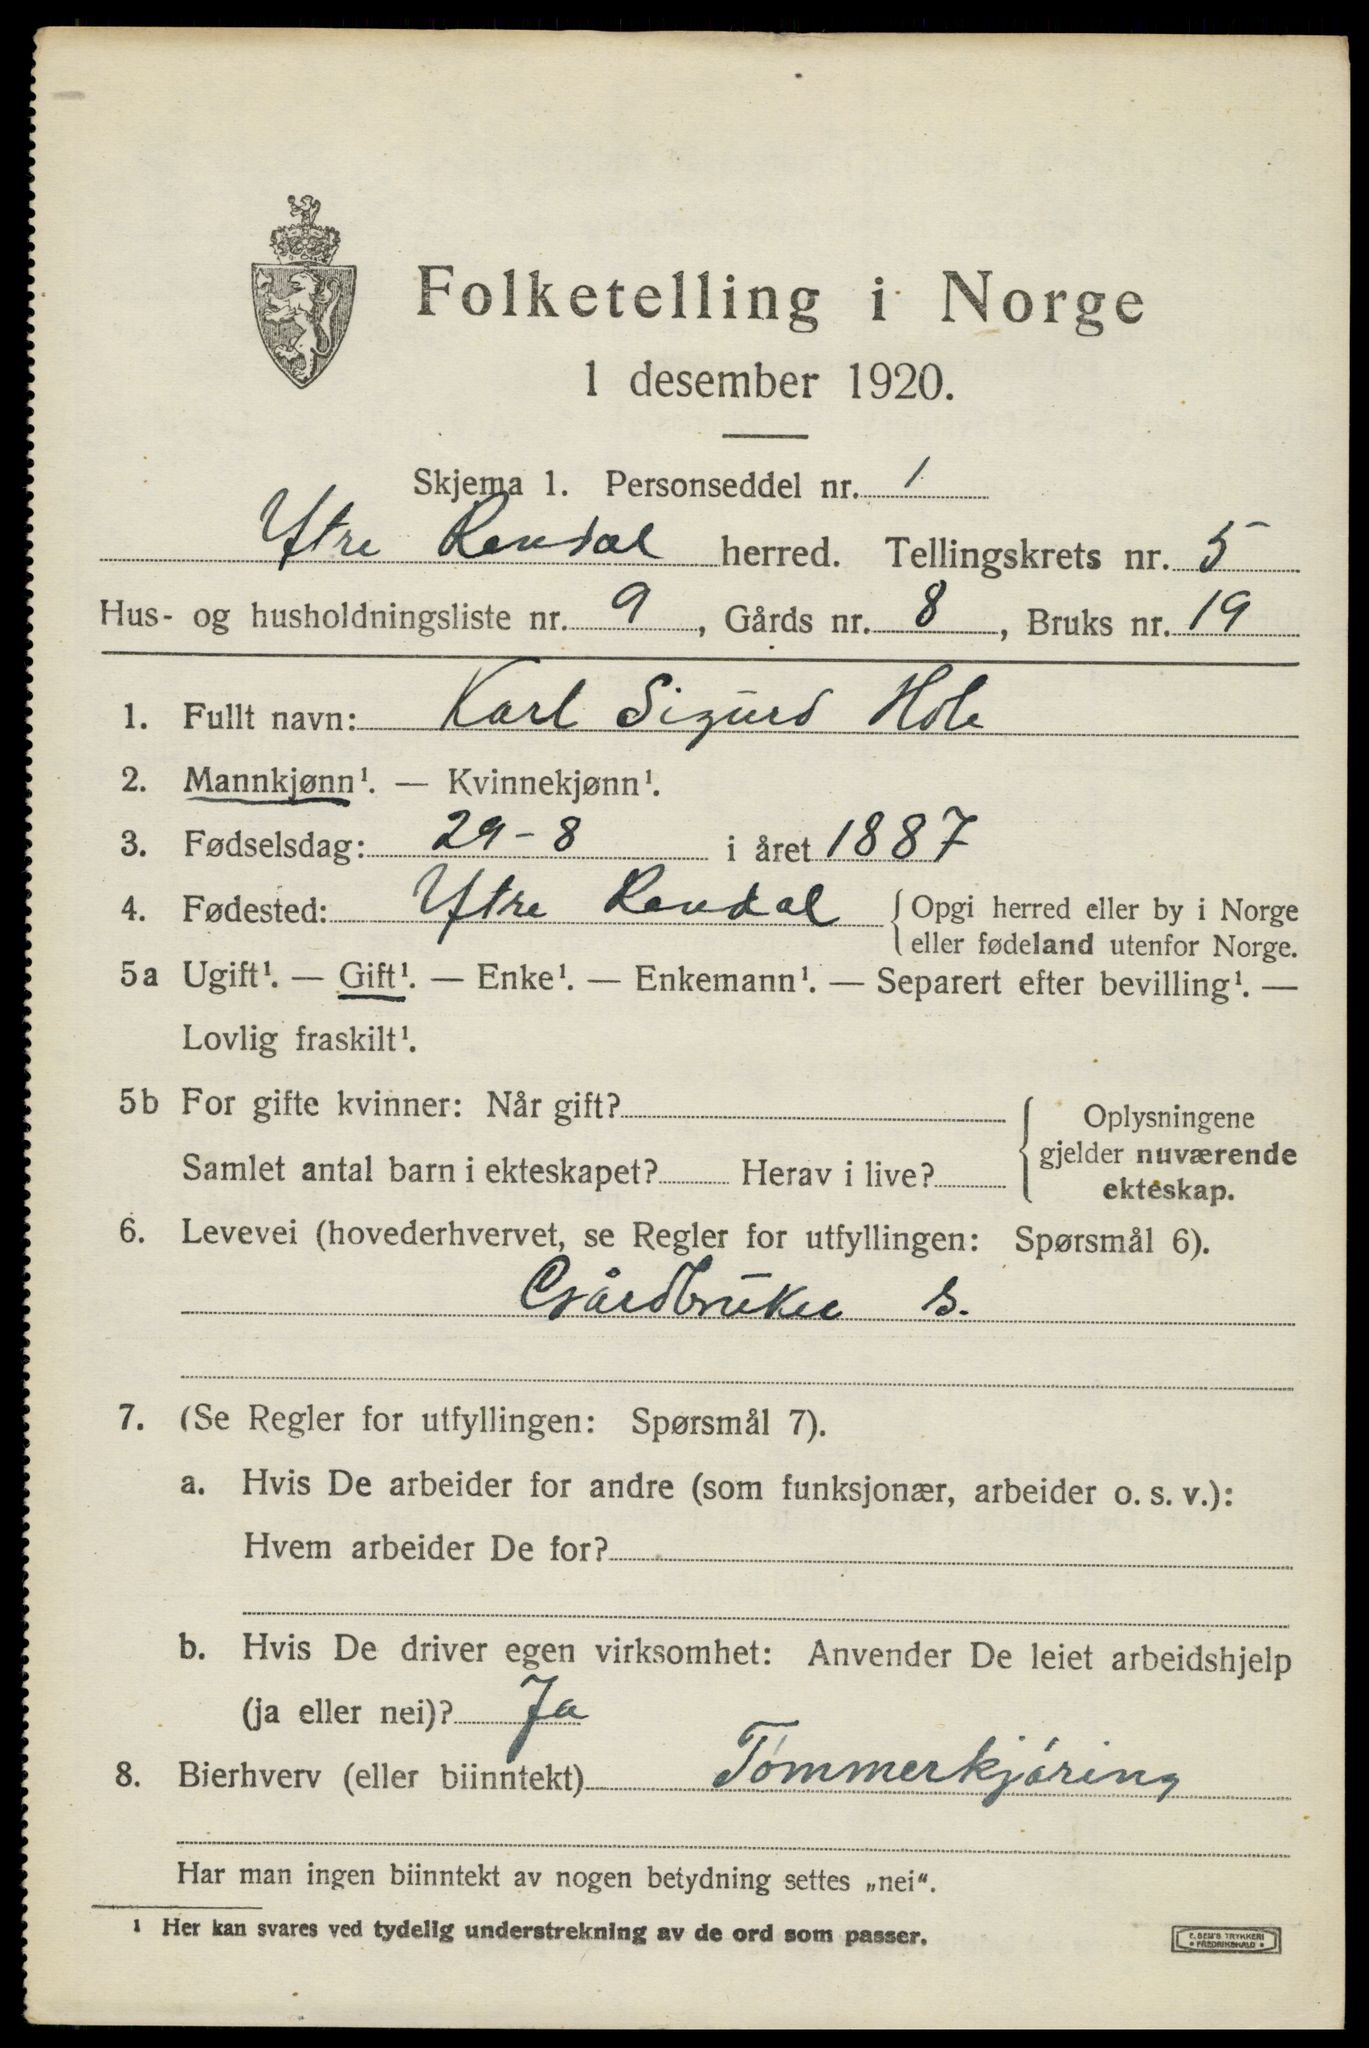 Folketelling i Norge
1 desember 1920.
Skjema 1. Personseddel nr. 1
Ytre Rendal herred. Tellingskrets nr. 5
Hus- og husholdningsliste nr. 9, Gårds nr. 8, Bruks nr. 19
1. Fullt navn: Karl Sigurd Hole
2. Mannkjønn¹. — Kvinnekjønn¹.
3. Fødselsdag: 29-8 i året 1887
4. Fødested: Ytre Rendal { Opgi herred eller by i Norge
eller fødeland utenfor Norge.
5a Ugift¹. — Gift¹. — Enke¹. — Enkemann¹. — Separert efter bevilling¹. —
Lovlig fraskilt¹.
5b For gifte kvinner: Når gift? { Oplysningene
gjelder nuværende
ekteskap.
Samlet antal barn i ekteskapet? Herav i live?
6. Levevei (hovederhvervet, se Regler for utfyllingen: Spørsmål 6).
Gårdbruker s.
7. (Se Regler for utfyllingen: Spørsmål 7).
a. Hvis De arbeider for andre (som funksjonær, arbeider o. s. v.):
Hvem arbeider De for?
b. Hvis De driver egen virksomhet: Anvender De leiet arbeidshjelp
(ja eller nei)? Ja
8. Bierhverv (eller biinntekt) Tømmerkjøring
Har man ingen biinntekt av nogen betydning settes „nei“.
¹ Her kan svares ved tydelig understrekning av de ord som passer.
E. SEM'S TRYKKERI
• FREDRIKSHALD •